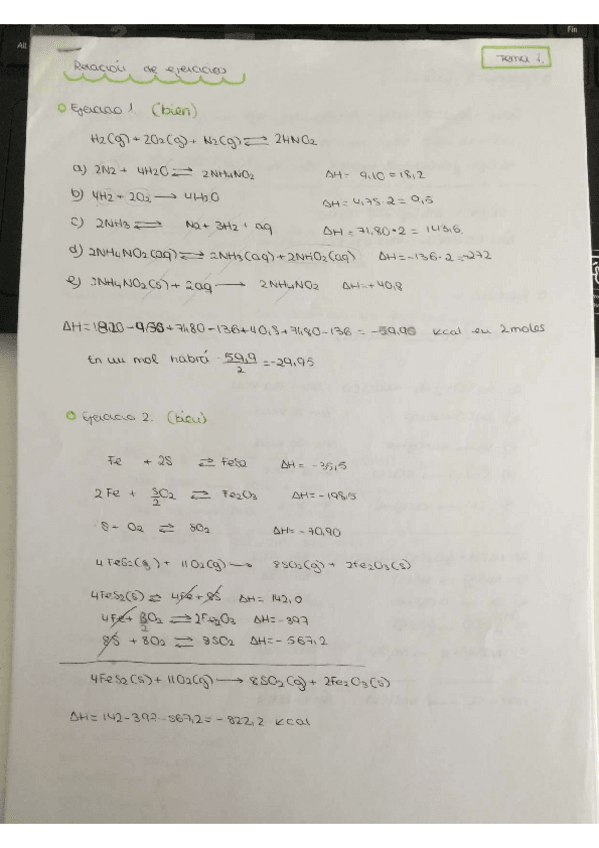 Tema 1.
Relación de ejercicios
Ejercicio 1. (bien)
H2(g) + 2O2(g) + N2(g) ⇌ 2HNO2
a) 2N2 + 4H2O ⇌ 2NH4NO2 ΔH = 9,10 = 18,2
b) 4H2 + 2O2 → 4H2O ΔH = 4,75·2 = 9,5
c) 2NH3 ⇌ N2 + 3H2 + aq ΔH = 71,80·2 = 143,6
d) 2NH4NO2(aq) ⇌ 2NH3(aq) + 2NHO2(aq) ΔH = -136·2 = -272
e) 2NH4NO2(s) + 2aq → 2NH4NO2 ΔH = +40,8
ΔH = 18,20 - + 71,80 - 136 + 40,8 + 71,80 - 136 = -59,90 kcal en 2 moles
En un mol habrá -59,9/2 = -29,95
Ejercicio 2. (bien)
Fe + 2S ⇌ FeS2 ΔH = -35,5
2Fe + 3/2 O2 ⇌ Fe2O3 ΔH = -198,5
S - O2 ⇌ SO2 ΔH = -70,90
4FeS2(s) + 11O2(g) → 8SO2(g) + 2Fe2O3(s)
4FeS2(s) ⇌ 4Fe + 8S ΔH = 142,0
4Fe + O2 ⇌ 2Fe2O3 ΔH = -397
8S + 8O2 ⇌ 8SO2 ΔH = -567,2
4FeS2(s) + 11O2(g) → 8SO2(g) + 2Fe2O3(s)
ΔH = 142 - 397 - 567,2 = -822,2 kcal